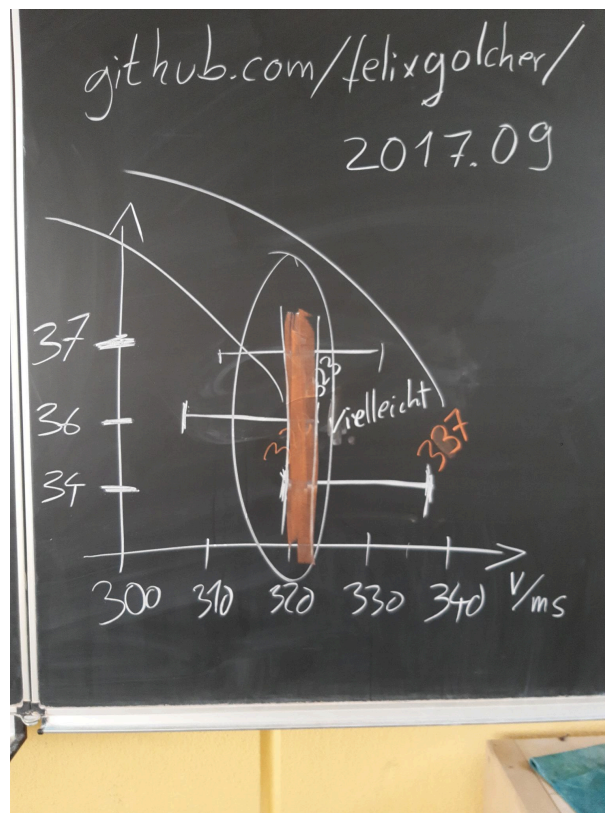 github.com/felixgolcher/
2017.09
37
323
36
vielleicht
337
34
300 310 320 330 340 V/ms